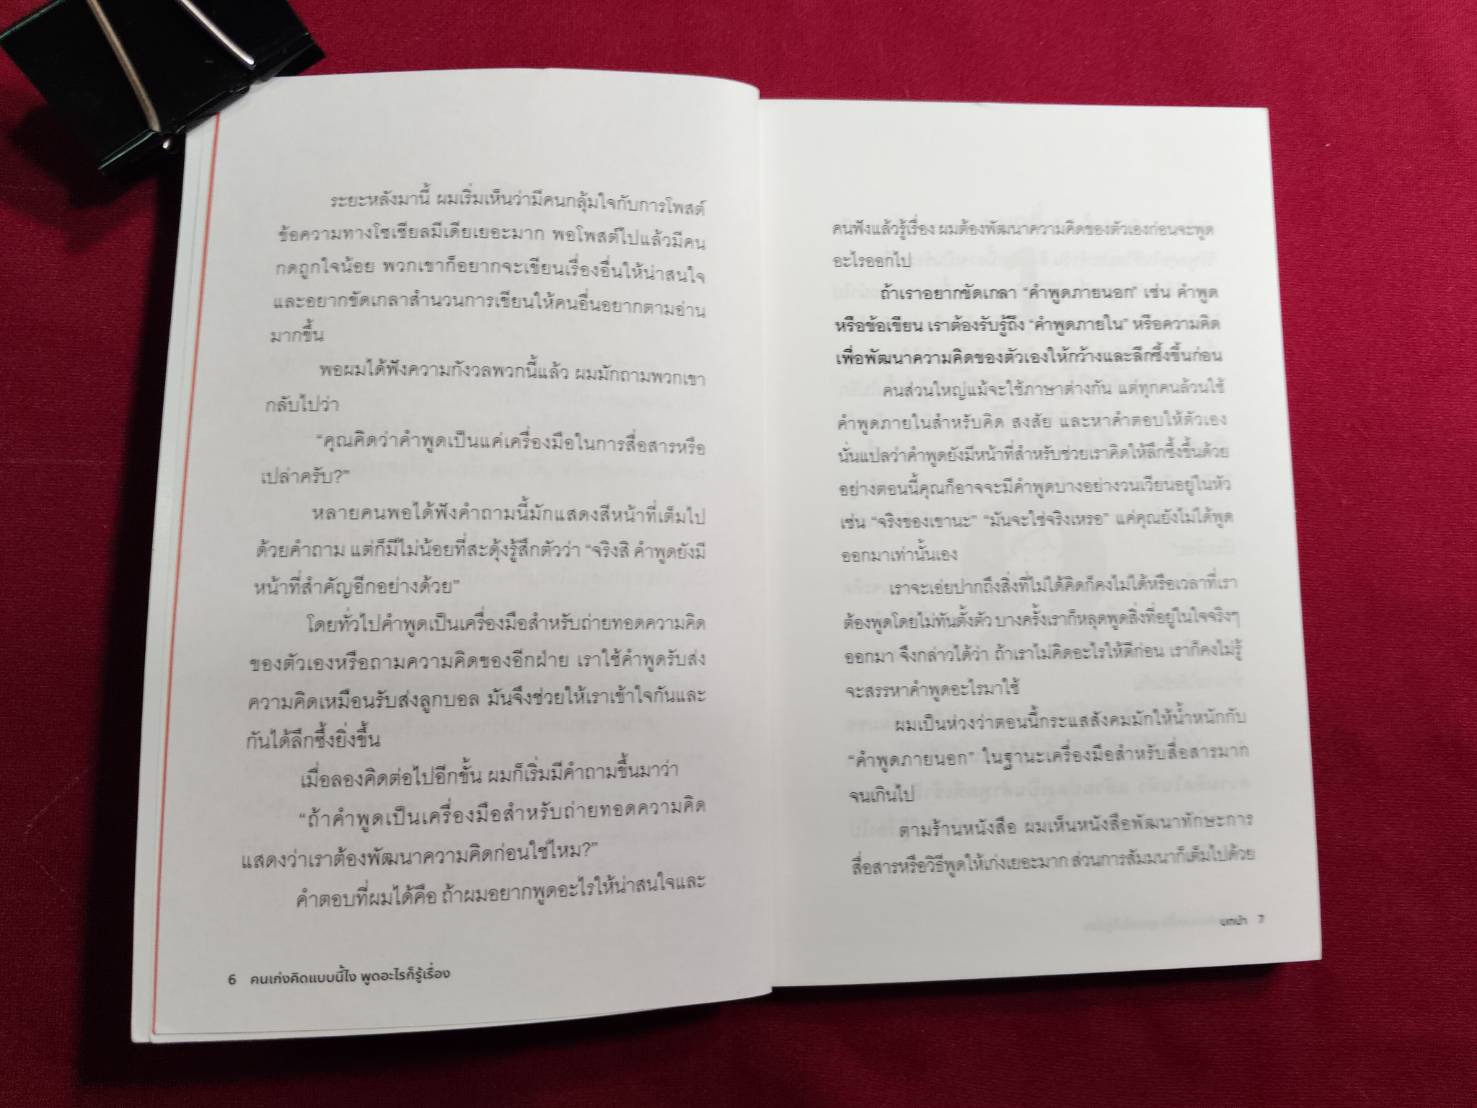 ระยะหลังมานี้ ผมเริ่มเห็นว่ามีคนกลุ้มใจกับการโพสต์
ข้อความทางโซเชียลมีเดียเยอะมาก พอโพสต์ไปแล้วมีคน
กดถูกใจน้อย พวกเขาก็อยากจะเขียนเรื่องอื่นให้น่าสนใจ
และอยากขัดเกลาสำนวนการเขียนให้คนอื่นอยากตามอ่าน
มากขึ้น
พอผมได้ฟังความกังวลพวกนี้แล้ว ผมมักถามพวกเขา
กลับไปว่า
“คุณคิดว่าคำพูดเป็นแค่เครื่องมือในการสื่อสารหรือ
เปล่าครับ?”
หลายคนพอได้ฟังคำถามนี้มักแสดงสีหน้าที่เต็มไป
ด้วยคำถาม แต่ก็มีไม่น้อยที่สะดุ้งรู้สึกตัวว่า “จริงสิ คำพูดยังมี
หน้าที่สำคัญอีกอย่างด้วย”
โดยทั่วไปคำพูดเป็นเครื่องมือสำหรับถ่ายทอดความคิด
ของตัวเองหรือถามความคิดของอีกฝ่าย เราใช้คำพูดรับส่ง
ความคิดเหมือนรับส่งลูกบอล มันจึงช่วยให้เราเข้าใจกันและ
กันได้ลึกซึ้งยิ่งขึ้น
เมื่อลองคิดต่อไปอีกขั้น ผมก็เริ่มมีคำถามขึ้นมาว่า
“ถ้าคำพูดเป็นเครื่องมือสำหรับถ่ายทอดความคิด
แสดงว่าเราต้องพัฒนาความคิดก่อนใช่ไหม?”
คำตอบที่ผมได้คือ ถ้าผมอยากพูดอะไรให้น่าสนใจและ
6 คนเก่งคิดแบบนี้ไง พูดอะไรก็รู้เรื่อง
คนฟังแล้วรู้เรื่อง ผมต้องพัฒนาความคิดของตัวเองก่อนจะพูด
อะไรออกไป
ถ้าเราอยากขัดเกลา “คำพูดภายนอก” เช่น คำพูด
หรือข้อเขียน เราต้องรับรู้ถึง “คำพูดภายใน” หรือความคิด
เพื่อพัฒนาความคิดของตัวเองให้กว้างและลึกซึ้งขึ้นก่อน
คนส่วนใหญ่แม้จะใช้ภาษาต่างกัน แต่ทุกคนล้วนใช้
คำพูดภายในสำหรับคิด สงสัย และหาคำตอบให้ตัวเอง
นั่นแปลว่าคำพูดยังมีหน้าที่สำหรับช่วยเราคิดให้ลึกซึ้งขึ้นด้วย
อย่างตอนนี้คุณก็อาจจะมีคำพูดบางอย่างวนเวียนอยู่ในหัว
เช่น “จริงของเขานะ” “มันจะใช่จริงเหรอ” แค่คุณยังไม่ได้พูด
ออกมาเท่านั้นเอง
เราจะเอ่ยปากถึงสิ่งที่ไม่ได้คิดก็คงไม่ได้หรือเวลาที่เรา
ต้องพูดโดยไม่ทันตั้งตัว บางครั้งเราก็หลุดพูดสิ่งที่อยู่ในใจจริงๆ
ออกมา จึงกล่าวได้ว่า ถ้าเราไม่คิดอะไรให้ดีก่อน เราก็คงไม่รู้
จะสรรหาคำพูดอะไรมาใช้
ผมเป็นห่วงว่าตอนนี้กระแสสังคมมักให้น้ำหนักกับ
“คำพูดภายนอก” ในฐานะเครื่องมือสำหรับสื่อสารมาก
จนเกินไป
ตามร้านหนังสือ ผมเห็นหนังสือพัฒนาทักษะการ
สื่อสารหรือวิธีพูดให้เก่งเยอะมาก ส่วนการสัมมนาก็เต็มไปด้วย
บทนำ 7